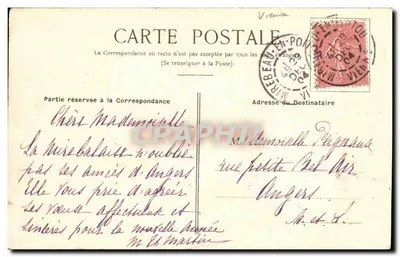 Vienne
CARTE POSTALE
La Correspondance au recto n'est pas acceptée par tous les
(Se renseigner à la Poste)
MIREBEAU-EN-POITOU
Partie réservée à la Correspondance
Adresse du Destinataire
Chère Mademoiselle
La mirebalaise n'oublie
pas ses amies d'Angers
Elle vous prie d'agréer
ses vœux affectueux et
sincères pour la nouvelle année
M Martin
Mademoiselle
rue petite Bel Air
Angers
M. et L.
CARTE POSTALE